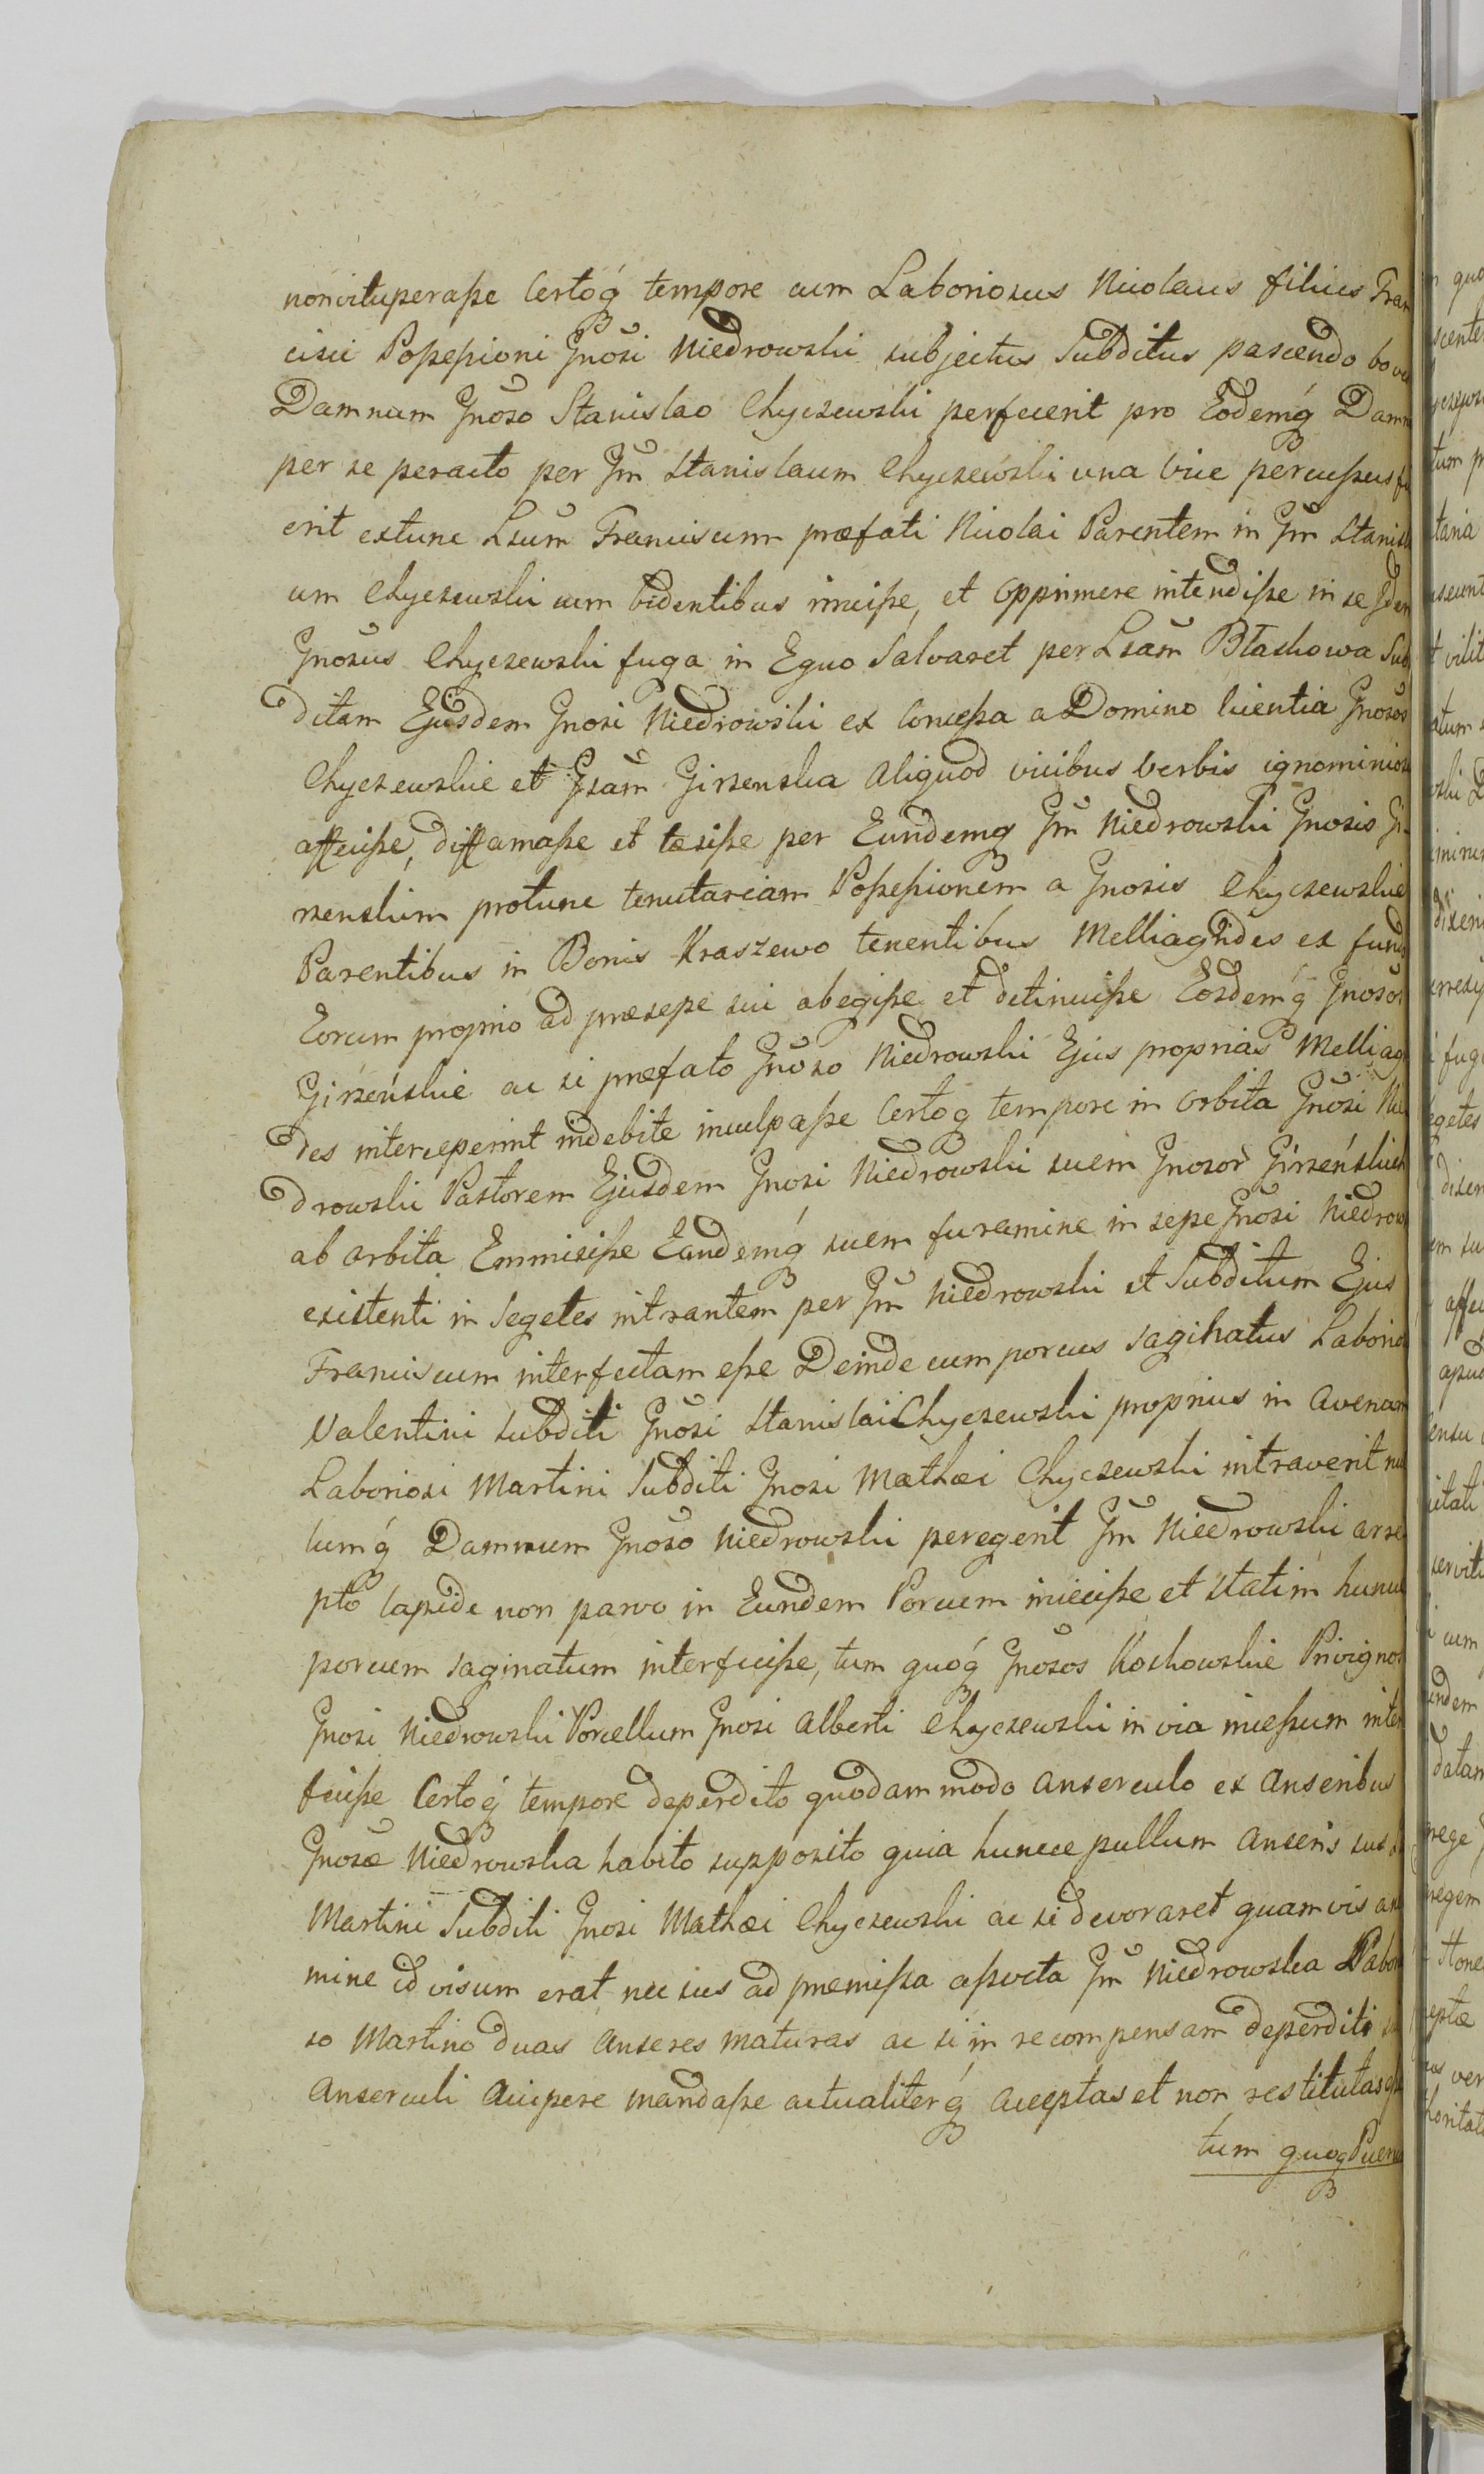 nonvituperaſse Certoq́ tempore cum Laboriosus Nicolaus filius Fran
cisci Poſseſsioni Gnosi Niedrowski subjectus Subditus pascendo boves
Damnum Gnoso Stanislao Chyczewski perfecerit pro Eodemq́ Damn
per se peracto per Gm Stanislaum Chyczewski una vice percuſsus fu
erit extunc Lsum Franciscum præfati Nicolai Parentem in Gm Stanisla
um Chyczewski cum bidentibus irruiſse, et opprimere intendiſse ni se Idem
Gnosus Chyczewski fuga in Equo Salvaret per Lsam Błachowa Sub
ditam Ejusdem Gnosi Niedrowski ex conceſsa a Domino licentia Gnosos
Chyczewskie et Gsam Girzenska aliquod vicibus verbis ignominiosis
affeciſse, diffamaſse et læsiſse per Eundemq Gm Niedrowski Gnosis Gi
rzenskim protunc tenutariam Poſseſsionem a Gnosis Chyczewskie
Parentibus in Bonis Kraszewo tenentibus Melliagrides ex fundo
Eorum proprio ad præsepe sui abegiſse et detinuiſse Eosdemq́ Gnosos
Girzeńskie ac si præfato Gnoso Niedrowski Ejus proprias Melliagr
des interceperint indebite inculpaſse Certoq tempore in orbita Gnosi Nie
drowski Pastorem Ejusdem Gnosi Niedrowski suem Gnosor Girzeńskich
ab orbita Emmisiſse Eandemq́ suem furamine in sepe Gnosi Niedrow
existenti in Segetes intrantem per Gm Niedrowski et Subditum Ejus
Franciscum interfectam eſse Deinde cum porcus saginatus Laborio
Valentini subditi Gnosi Stanislai Chyczewski proprius in avenam
Laboriosi Martini Subditi Gnosi Mathæi Chyczewski intraverit nul
lumq́ Damnum Gnoso Niedrowski peregerit Gm Niedrowski arre
pto lapide non parvo in Eundem Porcum injeciſse et statim hunc
porcum saginatum interfeciſse, tum quoq́ Gnosos Kochowskie Privignos
Gnosi Niedrowski Porcellum Gnosi Alberti Chyczewski in via inceſsum inter
feciſse Certoq́ tempore deperdito quodammodo anserculo ex anseribus
Gnosæ Niedrowska habito supposito quia huncce pullum anseris sus
Martini Subditi Gnosi Mathæi Chyczewski ac si devoraret quamvis a ne
mine id visum erat nec sus ad præmiſsa aſsveta Gm Niedrowska Labori
so Martino duas anseres maturas ac si in recompensam deperditi
Anserculi accipere mandaſse actualiterq́ acceptas et non restitutas eſse
tum quoq Puerum